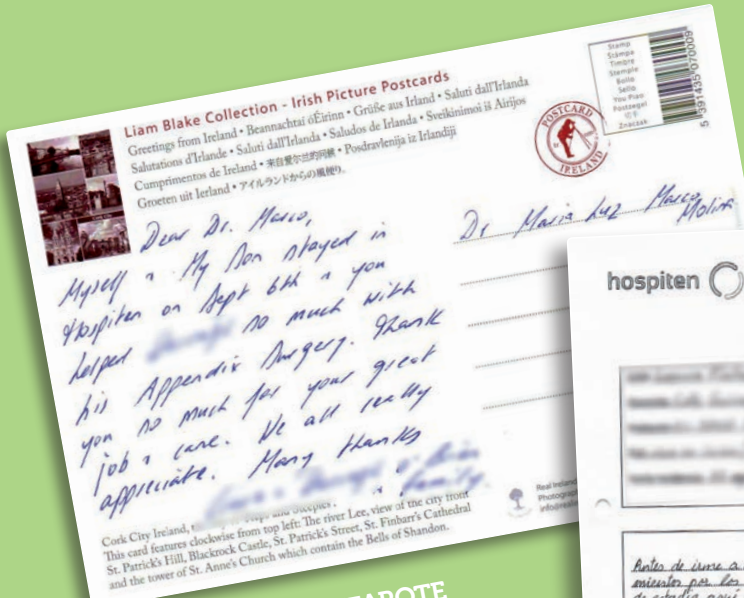 Liam Blake Collection - Irish Picture Postcards
Greetings from Ireland • Beannachtaí óÉirinn • Grüße aus Irland • Saluti dall'Irlanda
Salutations d'Irlande • Saluti dall'Irlanda • Saludos de Irlanda • Sveikinimoi iš Airijos
Cumprimentos de Ireland • 来自爱尔兰的问候 • Posdravlenija iz Irlandiji
Groeten uit Ierland • アイルランドからの風便り.
Stamp
Stampa
Timbre
Stemple
Bollo
Sello
You Piao
Postzegel
切手
Znaczek
5 391435 070009
POSTCARD
IRELAND
Dear Dr. Marco,
Myself & My Son stayed in
Hospiten on Sept 6th & you
helped so much with
his Appendix Surgery. Thank
you so much for your great
job & care. We all really
appreciate. Many thanks
& family.
Dr Maria Luz Marco
Molina
Cork City Ireland,
This card features clockwise from top left: The river Lee, view of the city from
St. Patrick's Hill, Blackrock Castle, St. Patrick's Street, St. Finbarr's Cathedral
and the tower of St. Anne's Church which contain the Bells of Shandon.
Real Ireland
Photograp
info@real
hospiten
Antes de irme a
mientos por los
de estadía aquí